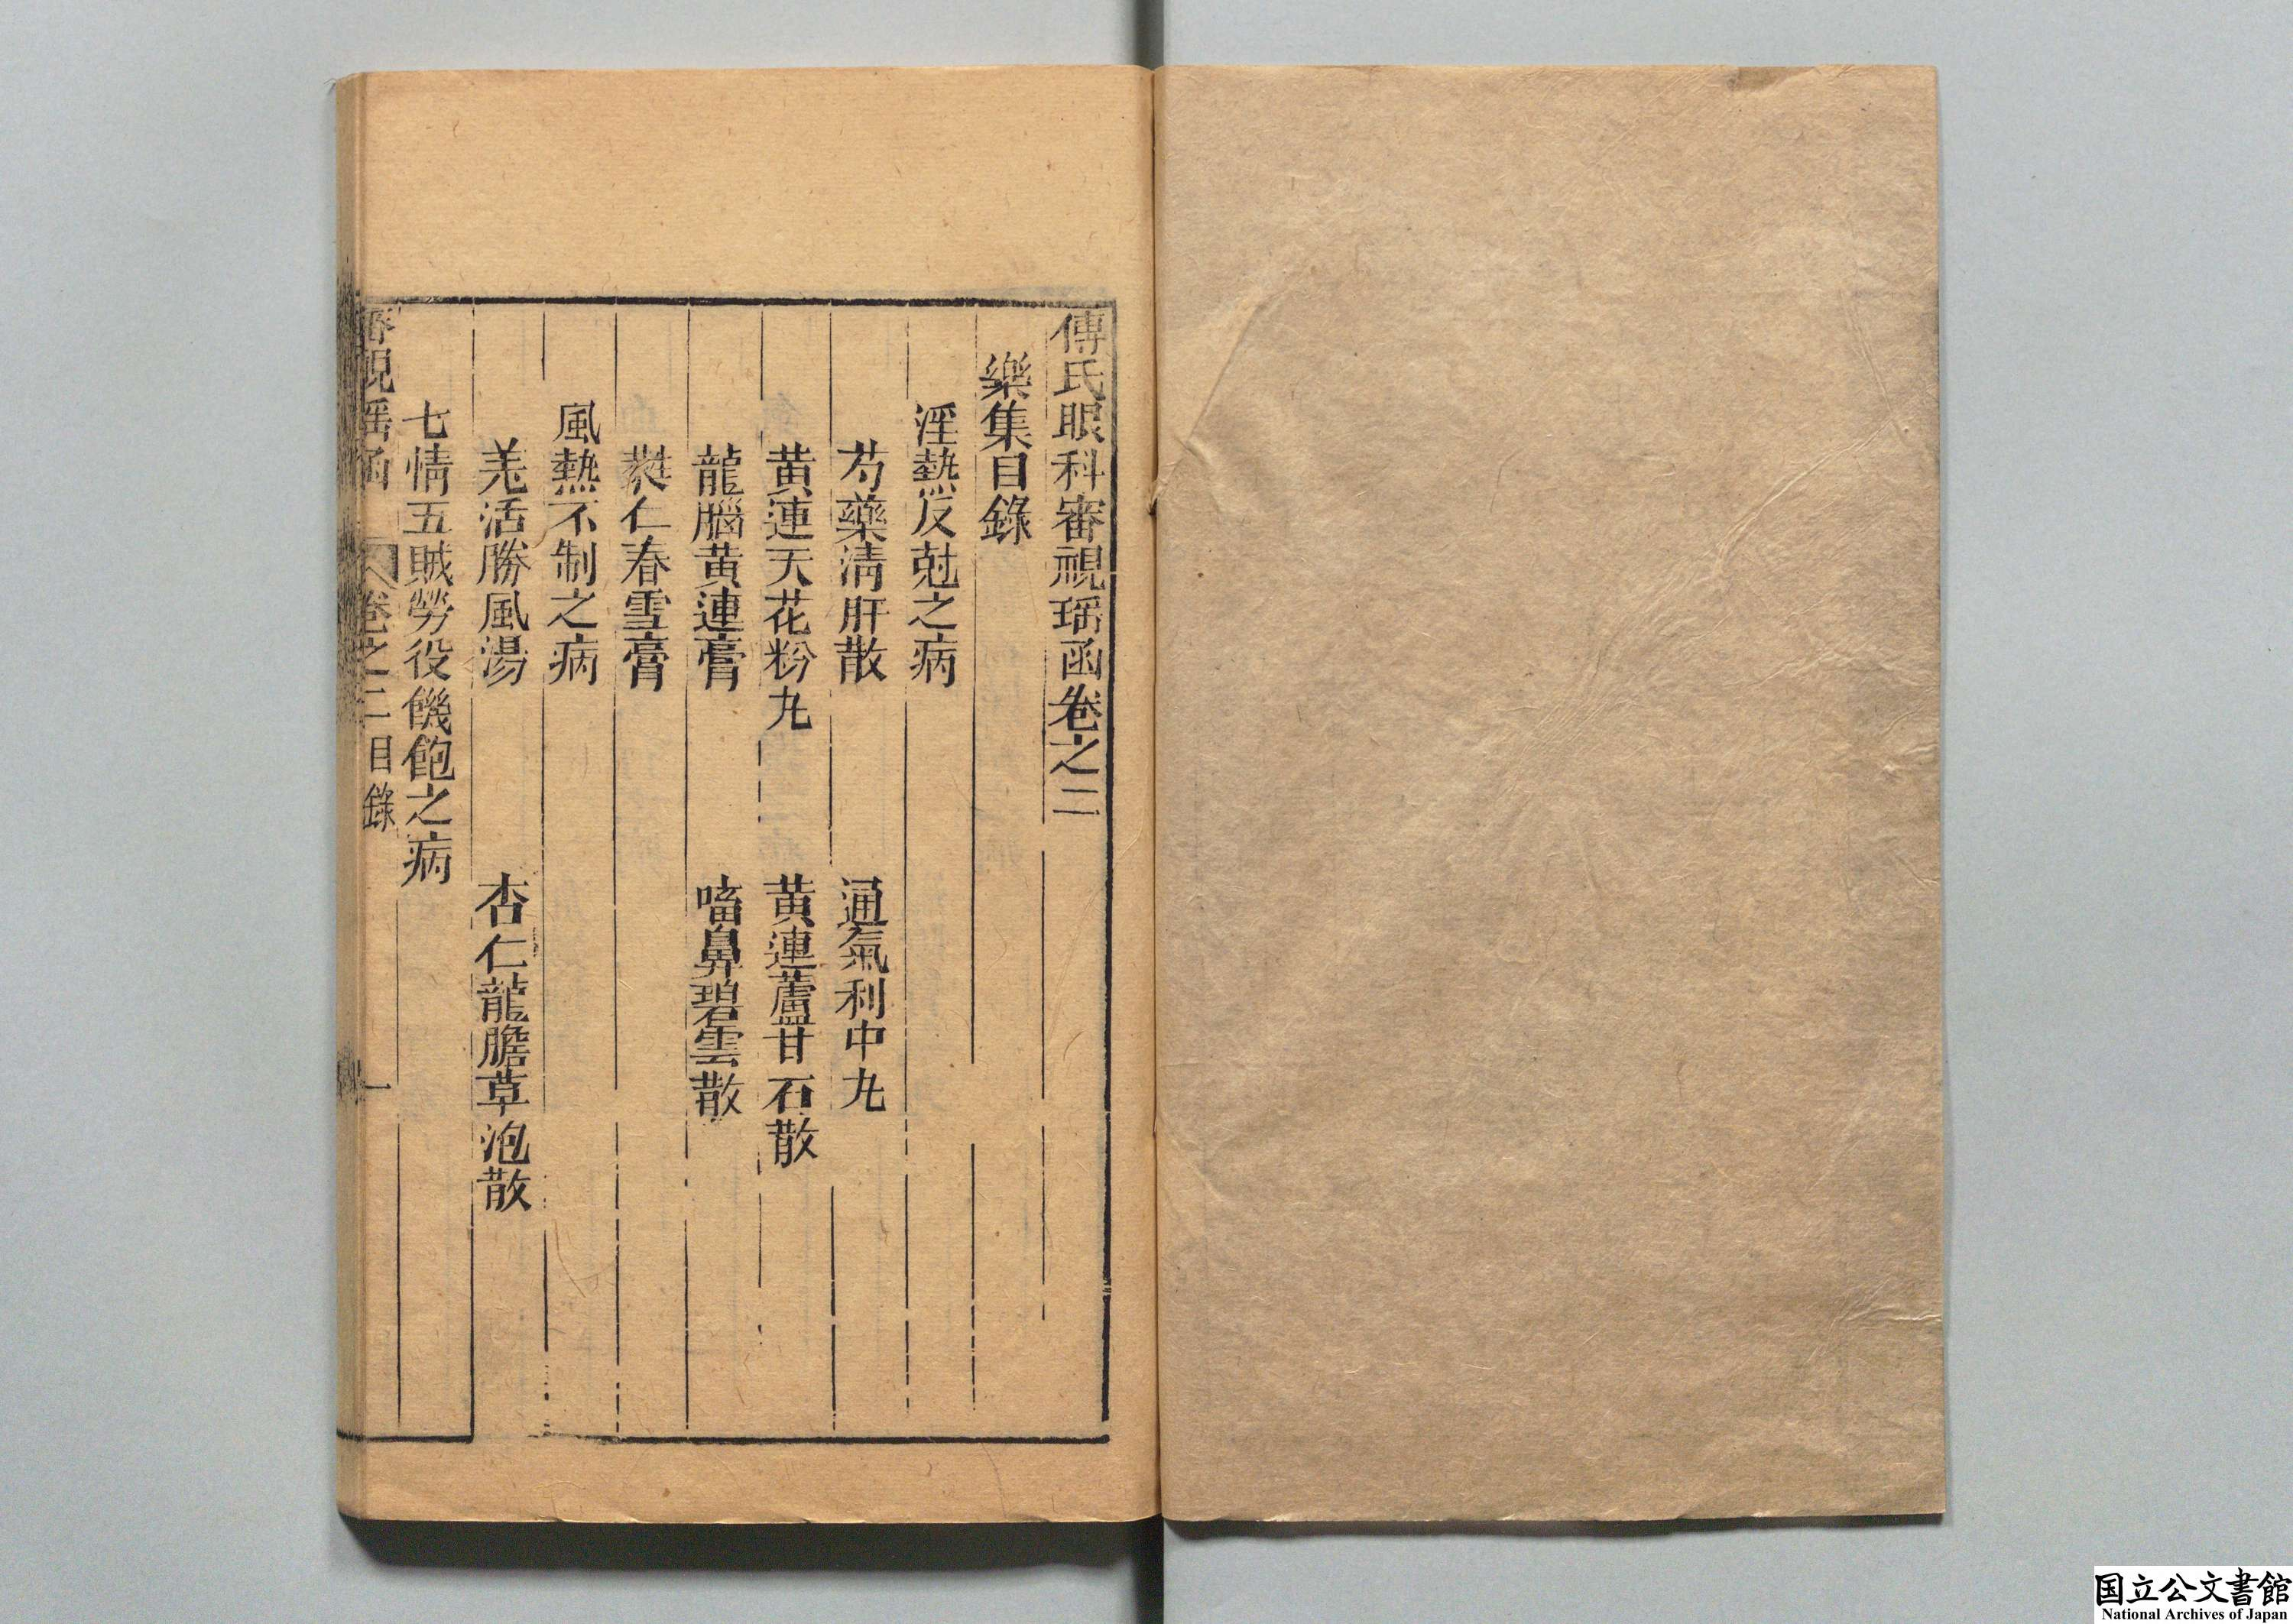 傅氏眼科審視瑤函卷之二
樂集目錄
淫熱反尅之病
芍藥清肝散　通氣利中丸
黃連天花粉丸　黃連蘆甘石散
龍腦黃連膏　㗜鼻碧雲散
蕤仁春雪膏
風熱不制之病
羌活勝風湯　杏仁龍膽草泡散
七情五賊勞役饑飽之病
審視瑤函　卷之二目錄　一
国立公文書館
National Archives of Japan